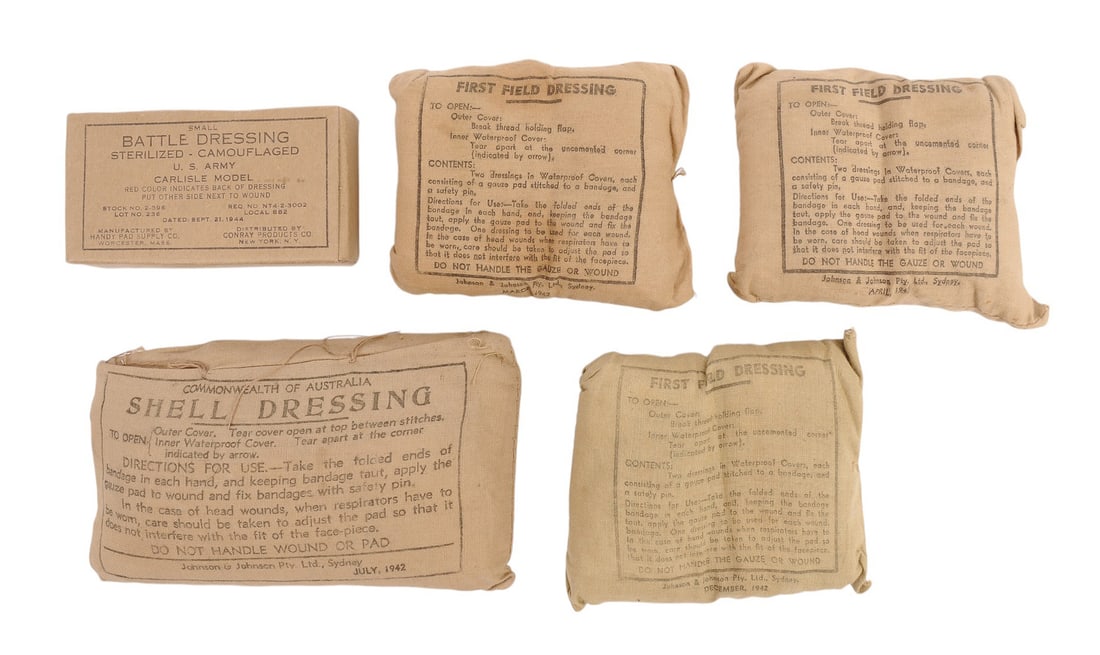 SMALL
BATTLE DRESSING
STERILIZED - CAMOUFLAGED
U. S. ARMY
CARLISLE MODEL
RED COLOR INDICATES BACK OF DRESSING
PUT OTHER SIDE NEXT TO WOUND
STOCK NO. 2-396 REQ. NO. NT4-2-3002
LOT NO. 236 LOCAL 882
DATED: SEPT. 21, 1944
MANUFACTURED BY DISTRIBUTED BY
HANDY PAD SUPPLY CO. CONRAY PRODUCTS CO.
WORCESTER, MASS. NEW YORK, N. Y.
FIRST FIELD DRESSING
TO OPEN:—
Outer Cover:
Break thread holding flap.
Inner Waterproof Cover:
Tear apart at the uncemented corner
(indicated by arrow).
CONTENTS:
Two Dressings in Waterproof Covers, each
consisting of a gauze pad stitched to a bandage, and
a safety pin.
Directions for Use:—Take the folded ends of the
bandage in each hand, and, keeping the bandage
taut, apply the gauze pad to the wound and fix the
bandage. One dressing to be used for each wound.
In the case of head wounds when respirators have to
be worn, care should be taken to adjust the pad so
that it does not interfere with the fit of the facepiece.
DO NOT HANDLE THE GAUZE OR WOUND
Johnson & Johnson Pty. Ltd., Sydney.
MARCH 1942
FIRST FIELD DRESSING
TO OPEN:—
Outer Cover:
Break thread holding flap.
Inner Waterproof Cover:
Tear apart at the uncemented corner
(indicated by arrow).
CONTENTS:
Two dressings in Waterproof Covers, each
consisting of a gauze pad stitched to a bandage, and
a safety pin.
Directions for Use:—Take the folded ends of the
bandage in each hand, and, keeping the bandage
taut, apply the gauze pad to the wound and fix the
bandage. One dressing to be used for each wound.
In the case of head wounds when respirators have to
be worn, care should be taken to adjust the pad so
that it does not interfere with the fit of the facepiece.
DO NOT HANDLE THE GAUZE OR WOUND
Johnson & Johnson Pty. Ltd., Sydney.
APRIL, 194
COMMONWEALTH OF AUSTRALIA
SHELL DRESSING
TO OPEN: Outer Cover. Tear cover open at top between stitches.
Inner Waterproof Cover. Tear apart at the corner
indicated by arrow.
DIRECTIONS FOR USE.—Take the folded ends of
bandage in each hand, and keeping bandage taut, apply the
gauze pad to wound and fix bandages with safety pin.
In the case of head wounds, when respirators have to
be worn, care should be taken to adjust the pad so that it
does not interfere with the fit of the face-piece.
DO NOT HANDLE WOUND OR PAD
Johnson & Johnson Pty. Ltd., Sydney
JULY, 1942
FIRST FIELD DRESSING
TO OPEN:—
Outer Cover:
Break thread holding flap.
Inner Waterproof Cover:
Tear apart at the uncemented corner
(indicated by arrow).
CONTENTS:
Two dressings in Waterproof Covers, each
consisting of a gauze pad stitched to a bandage, and
a safety pin.
Directions for Use:—Take the folded ends of the
bandage in each hand, and, keeping the bandage
taut, apply the gauze pad to the wound and fix the
bandage. One dressing to be used for each wound.
In the case of head wounds when respirators have to
be worn, care should be taken to adjust the pad so
that it does not interfere with the fit of the facepiece.
DO NOT HANDLE THE GAUZE OR WOUND
Johnson & Johnson Pty. Ltd., Sydney
DECEMBER, 1942